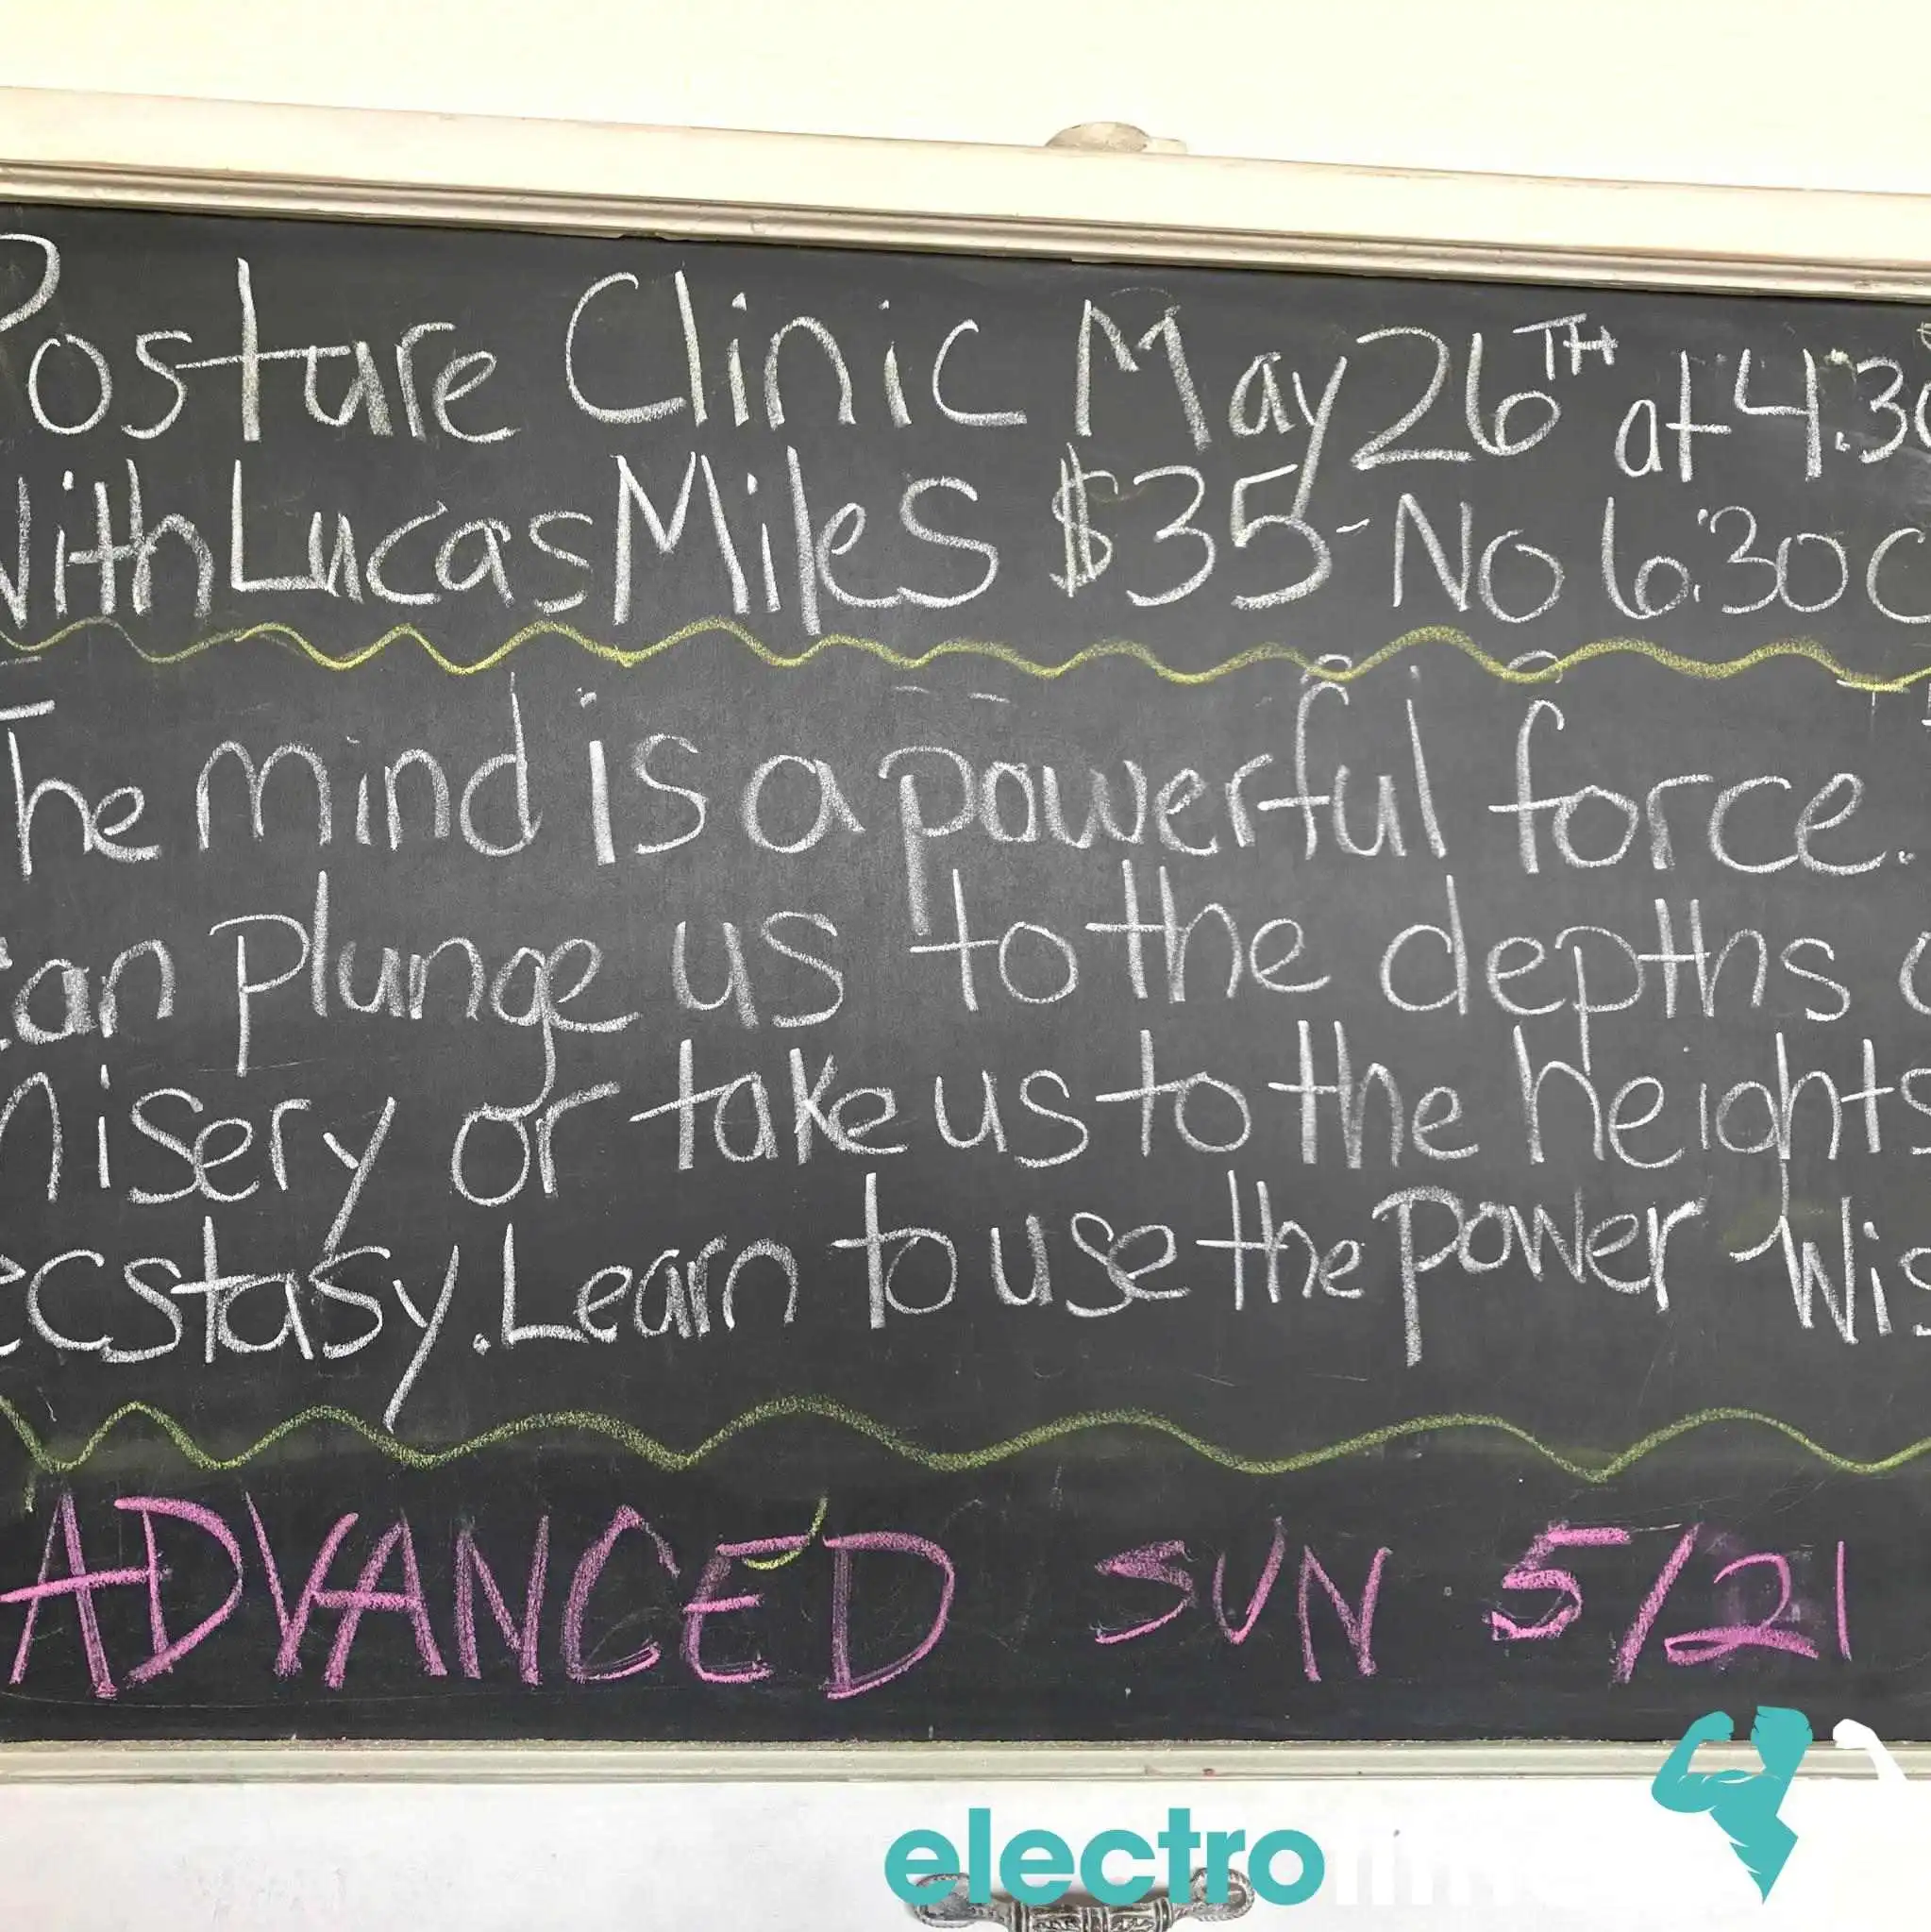 Posture Clinic May 26TH at 4.30
With Lucas Miles $35 - No 6:30 C
The mind is a powerful force.
can plunge us to the depths o
misery or take us to the heights
ecstasy. Learn to use the power Wis
ADVANCED SUN 5/21
electro